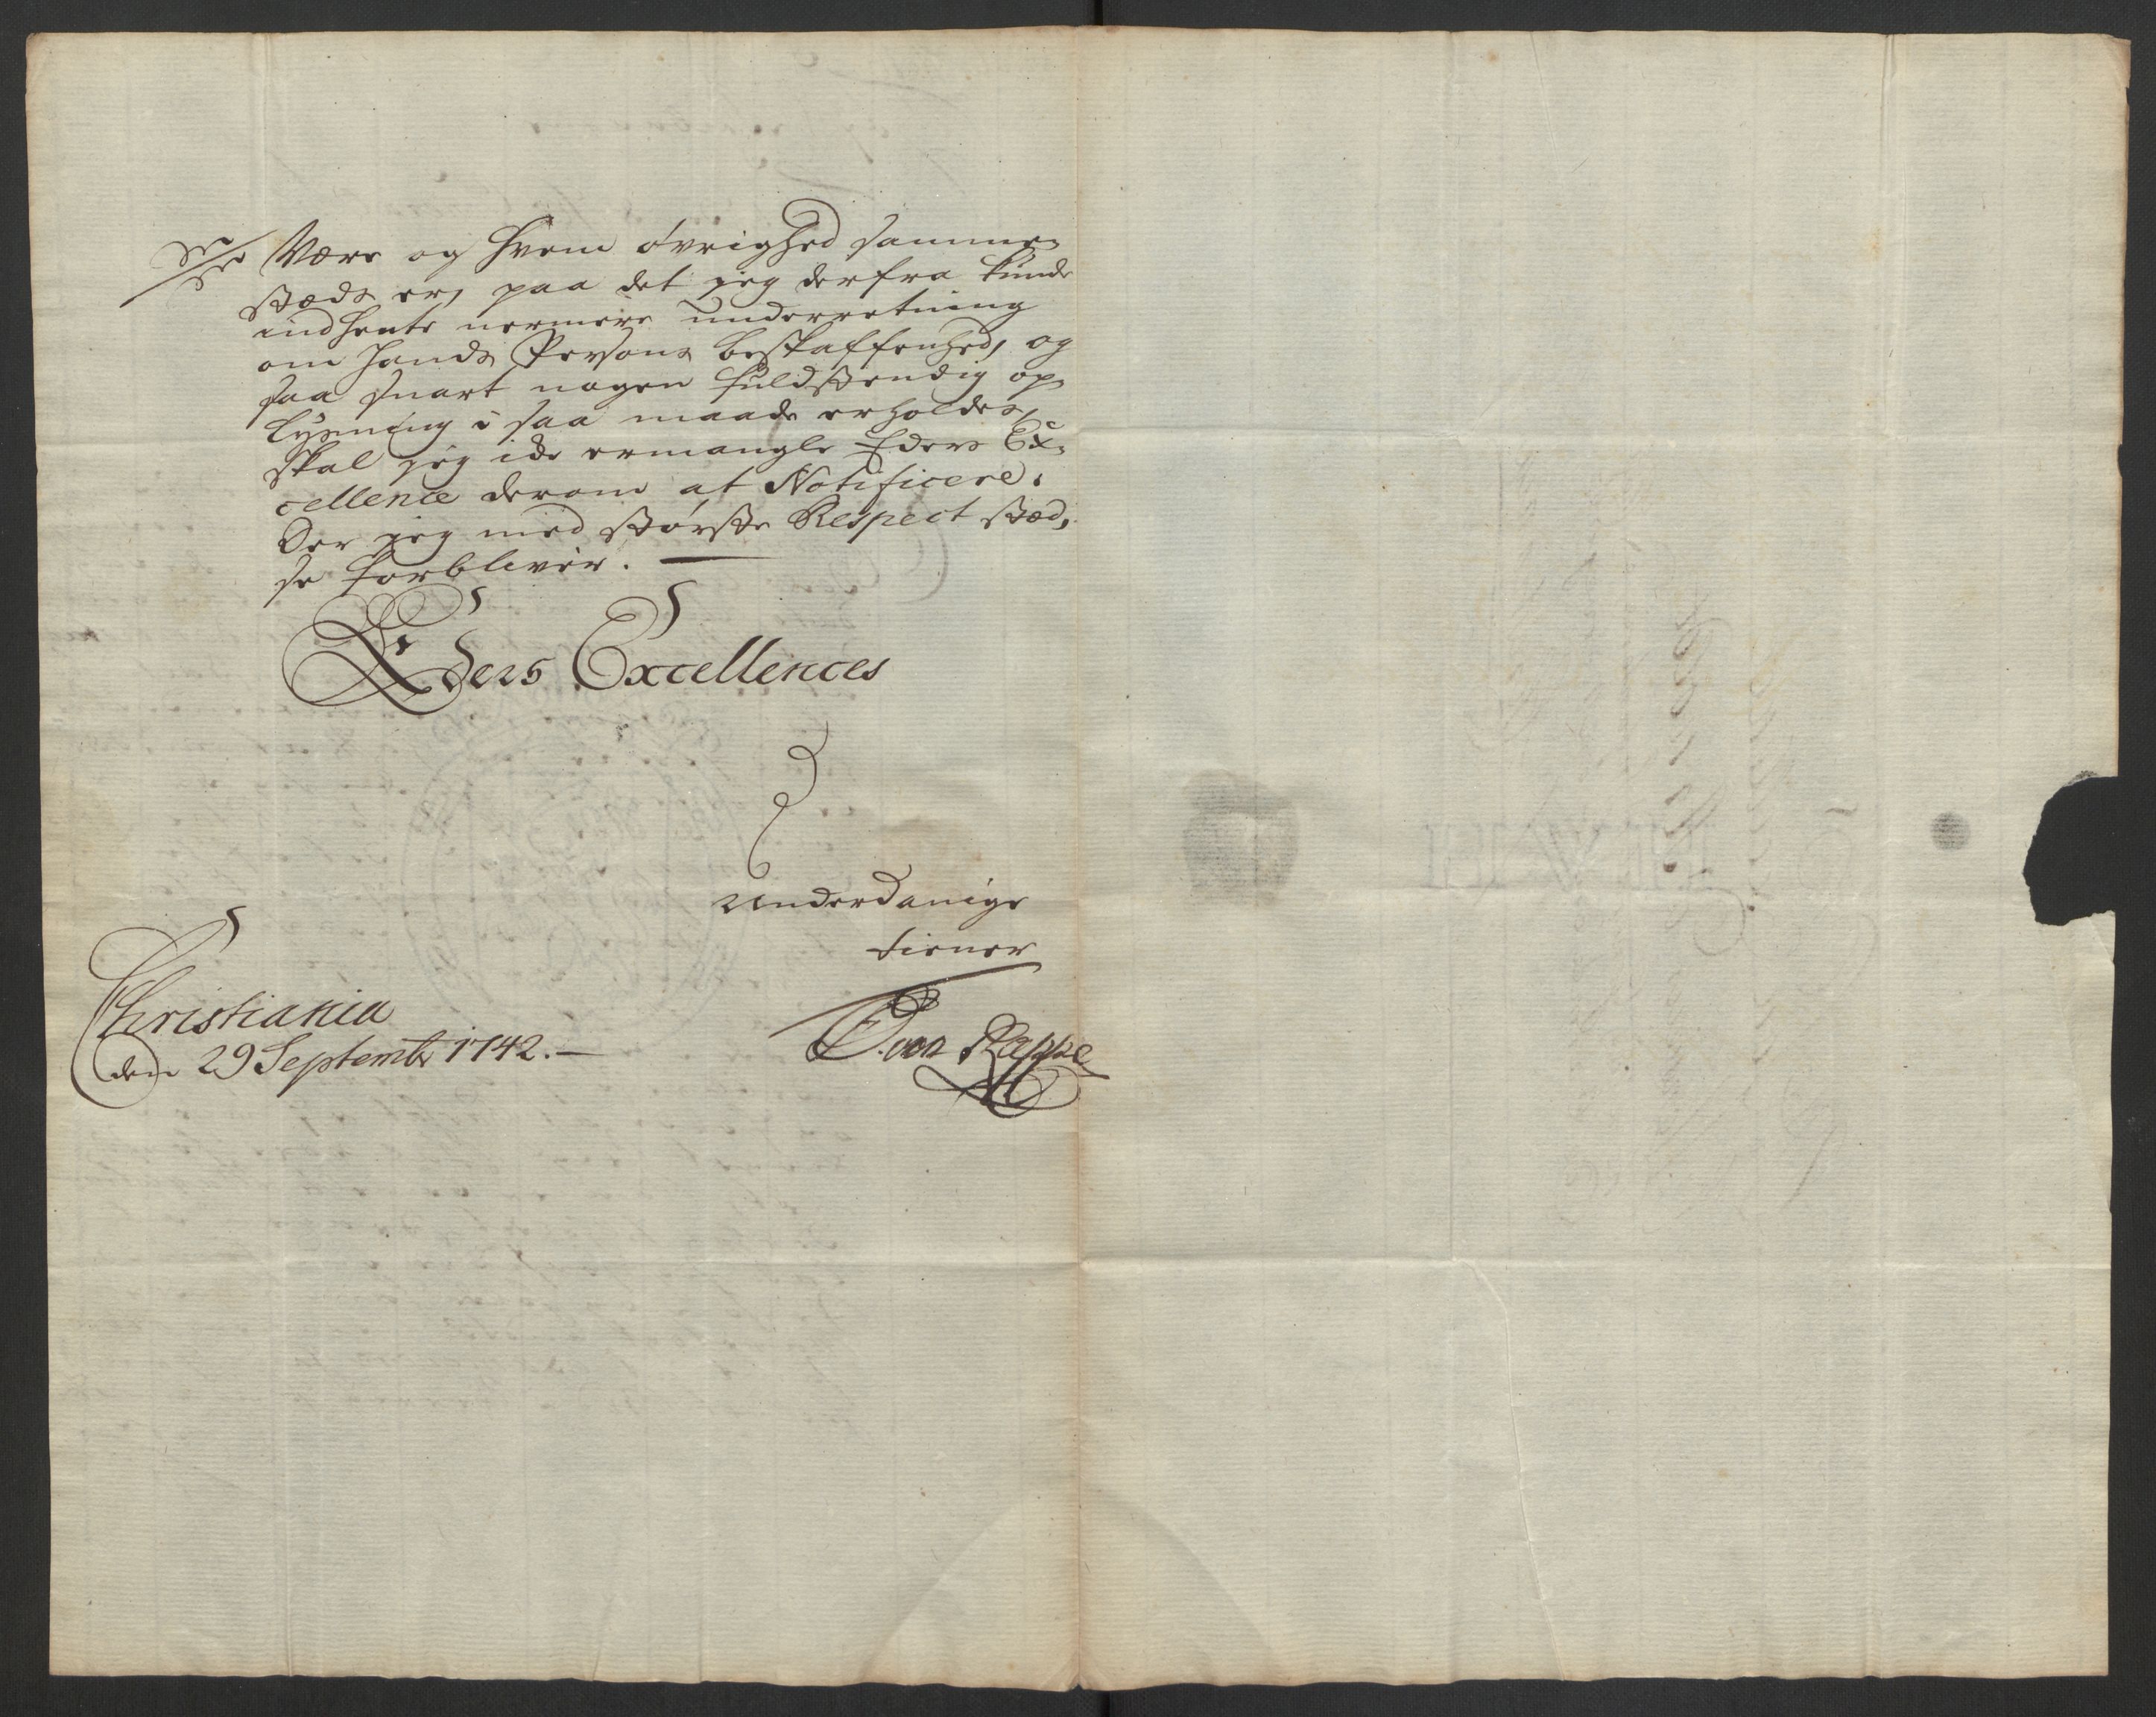 Være og hvem øvrighed samme-
stæds er, paa det jeg derfra kunde
indhente nermere underretning
om hands Persons beskaffenhed, og
saa snart nogen fuldstendig op-
lysning i saa maade erholdes,
skal jeg icke ermangle Eders Ex-
cellence derom at Notificere.
Der jeg med største Respect stæd-
se forbliver. —
Eders Excellences
underdanige
tiener
Christiania
den 29 Septembr 1742. —
C. von Rappe